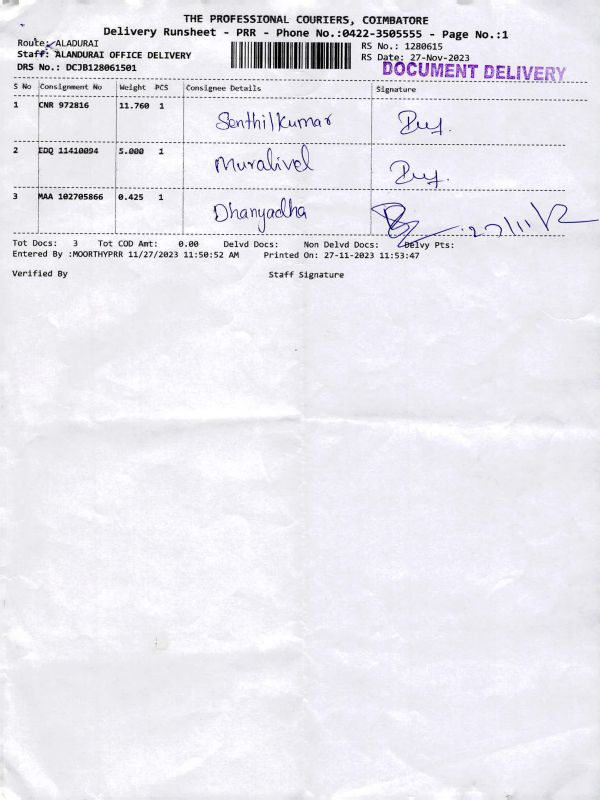 THE PROFESSIONAL COURIERS, COIMBATORE
Delivery Runsheet - PRR - Phone No.:0422-3505555 - Page No.:1
Route: ALADURAI RS No.: 1280615
Staff: ALANDURAI OFFICE DELIVERY RS Date: 27-Nov-2023
DRS No.: DCJB128061501 DOCUMENT DELIVERY
S No Consignment No Weight PCS Consignee Details Signature
1 CNR 972816 11.760 1 Senthilkumar
2 EDQ 11410094 5.000 1 Muralivel
3 MAA 102705866 0.425 1 Dhanyadha
Tot Docs: 3 Tot COD Amt: 0.00 Delvd Docs: Non Delvd Docs: Delvy Pts:
Entered By :MOORTHYPRR 11/27/2023 11:50:52 AM Printed On: 27-11-2023 11:53:47
Verified By Staff Signature